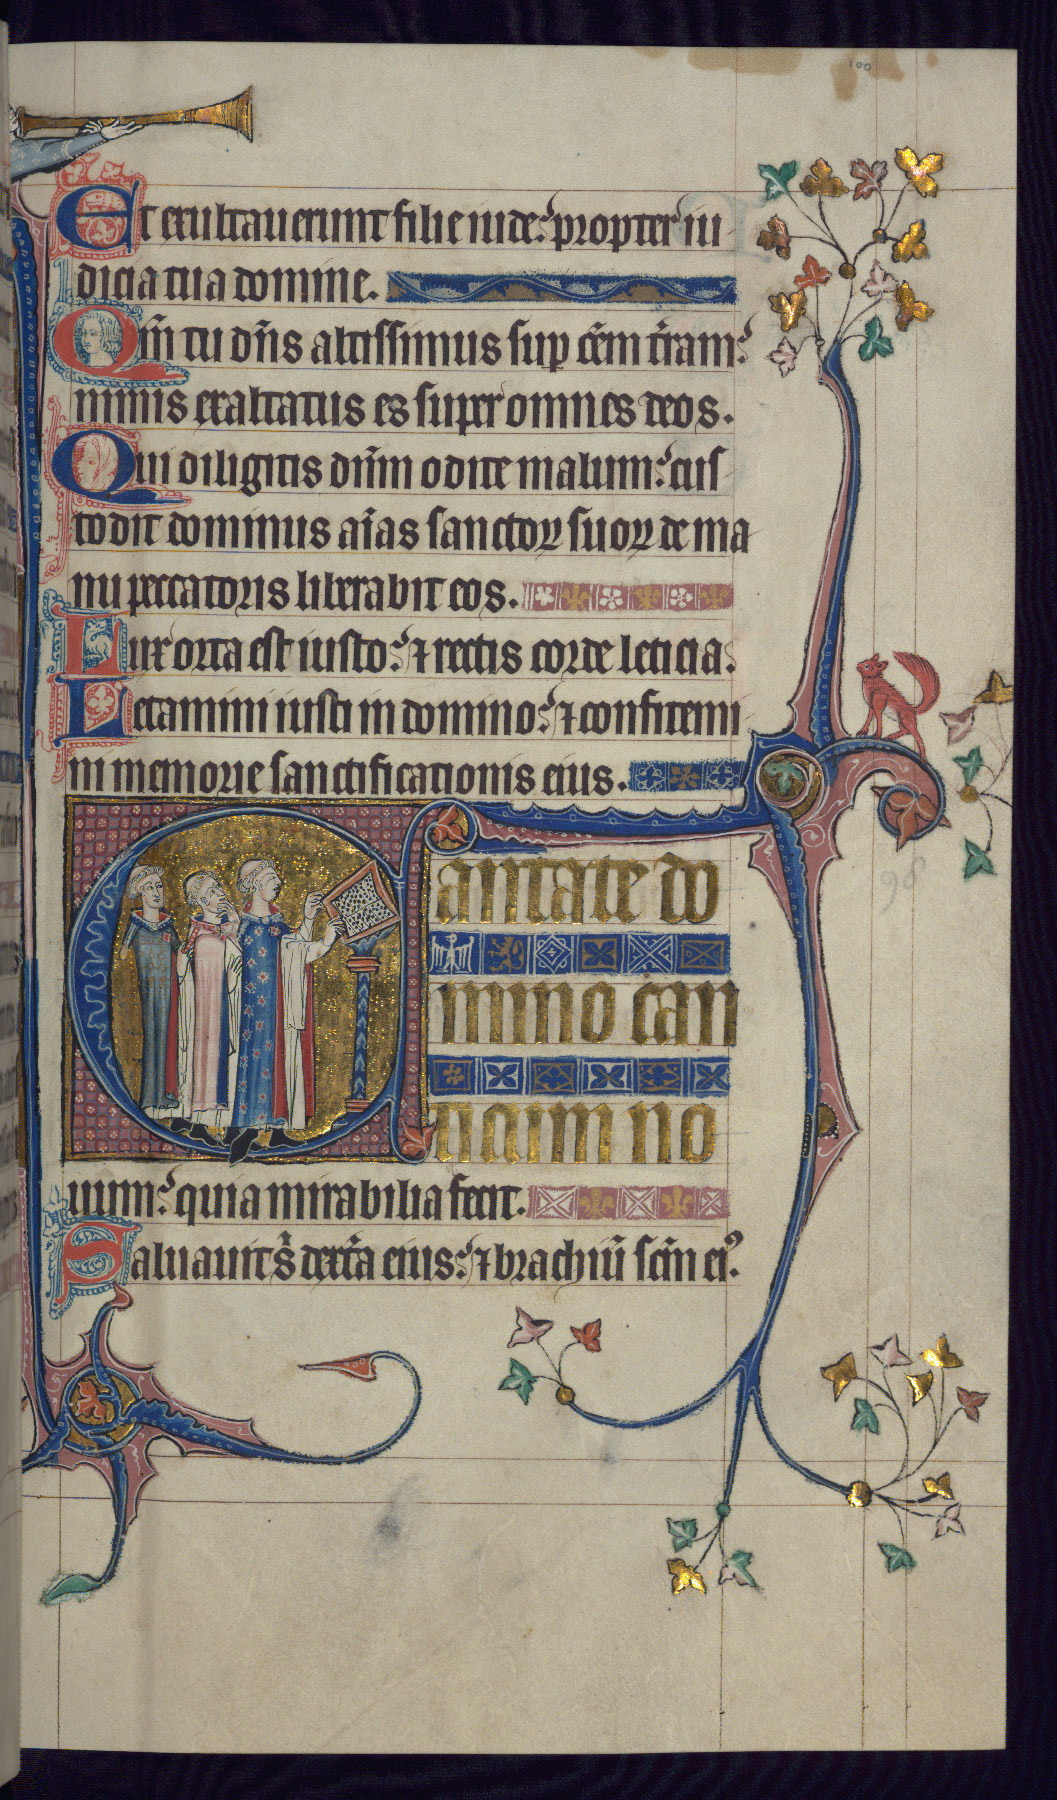 100
Et exultauerunt filie iude: propter iu
dicia tua domine.
Qm̄ tu dn̄s altissimus sup om̄em t̄ram:
nimis exaltatus es super omnes deos.
Qui diligitis dn̄m odite malum: cus
todit dominus aīas sanctoꝝ suoꝝ de ma
nu peccatoris liberabit eos.
Lux orta est iusto: ⁊ rectis corde leticia.
Letamini iusti in domino: ⁊ confitemi
ni memorie sanctificationis eius.
Cantate do
mino can
ticum no
uum: quia mirabilia fecit.
Saluauit s̄ dext̄a eius: ⁊ brachiū scm̄ eiꝰ.
98